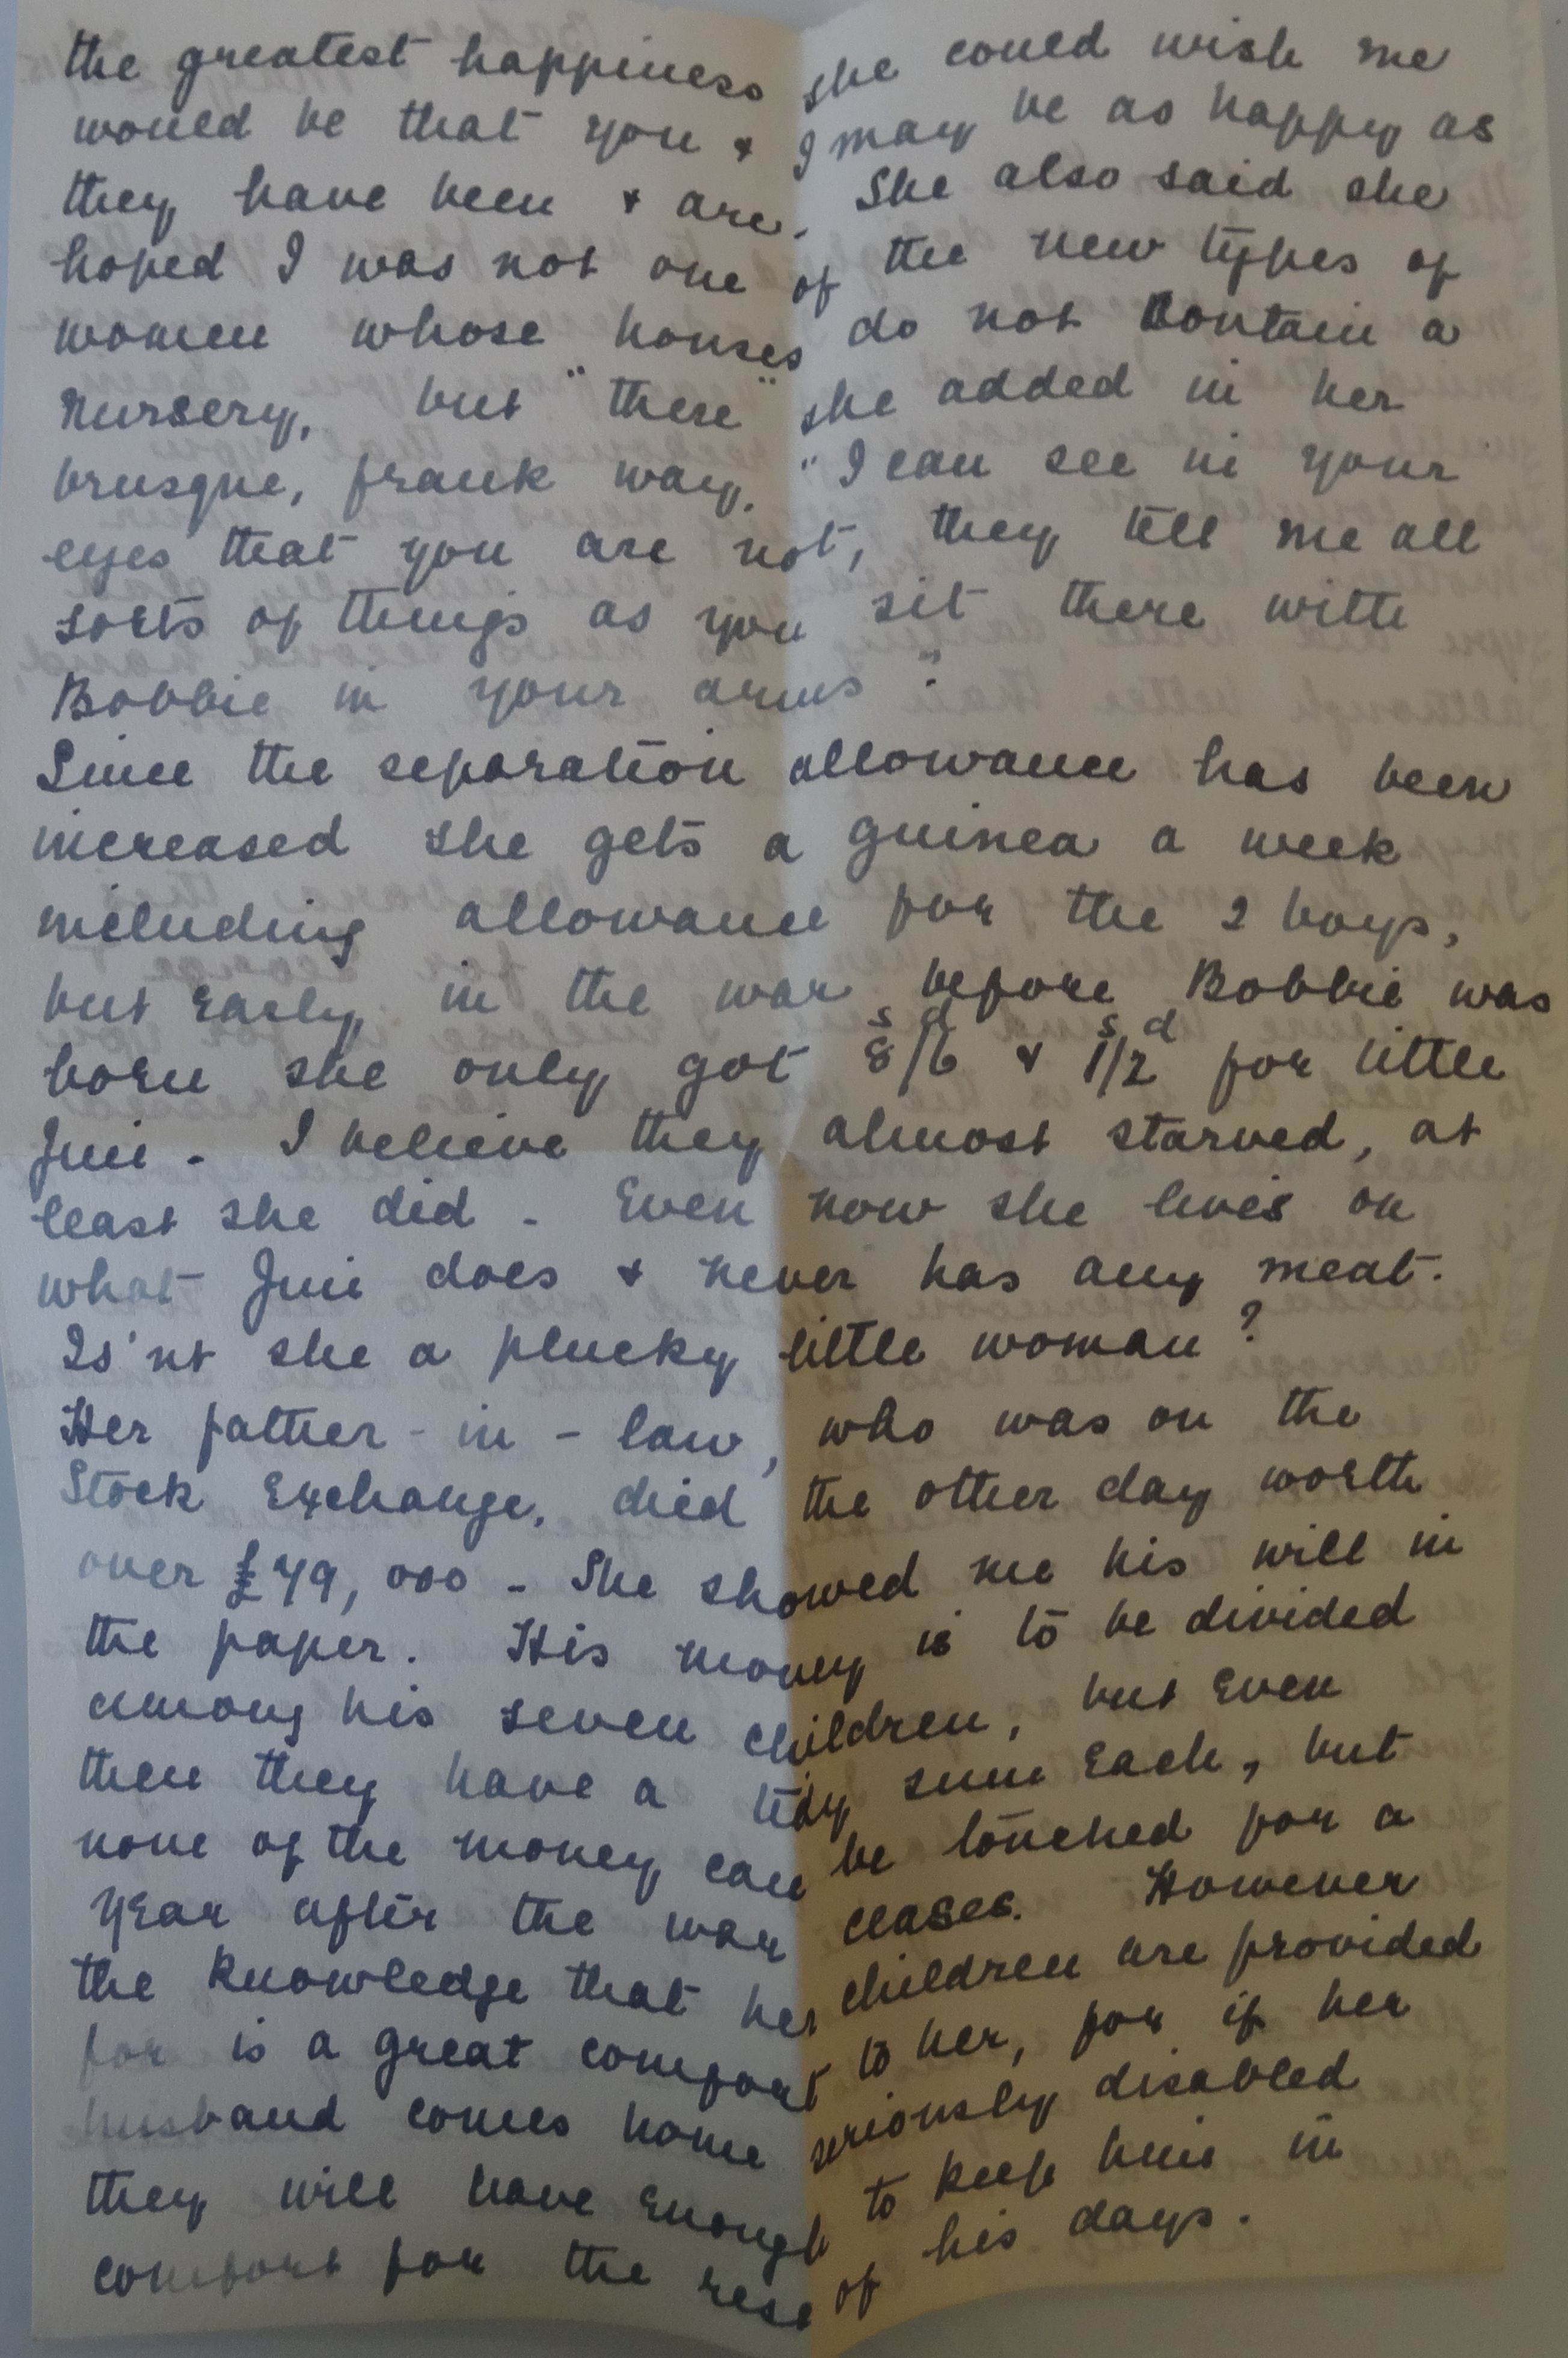 the greatest happiness she could wish me
would be that you & I may be as happy as
they have been & are. She also said she
hoped I was not one of the new types of
women whose houses do not Contain a
nursery, but "there" she added in her
brusque, frank way, "I can see in your
eyes that you are not, they tell me all
sorts of things as you sit there with
Bobbie in your arms".
Since the separation allowance has been
increased she gets a guinea a week
including allowance for the 2 boys,
but early in the war before Bobbie was
born she only got 8s/6d & 1s/2d for little
Jim. I believe they almost starved, at
least she did - Even now she lives on
what Jim does & never has any meat.
Is'nt she a plucky little woman?
Her father-in-law, who was on the
Stock Exchange, died the other day worth
over £79,000 - She showed me his will in
the paper. His money is to be divided
among his seven children, but even
then they have a tidy sum each, but
none of the money can be touched for a
year after the war ceases. However
the knowledge that her children are provided
for is a great comfort to her, for if her
husband comes home seriously disabled
they will have enough to keep him in
comfort for the rest of his days.